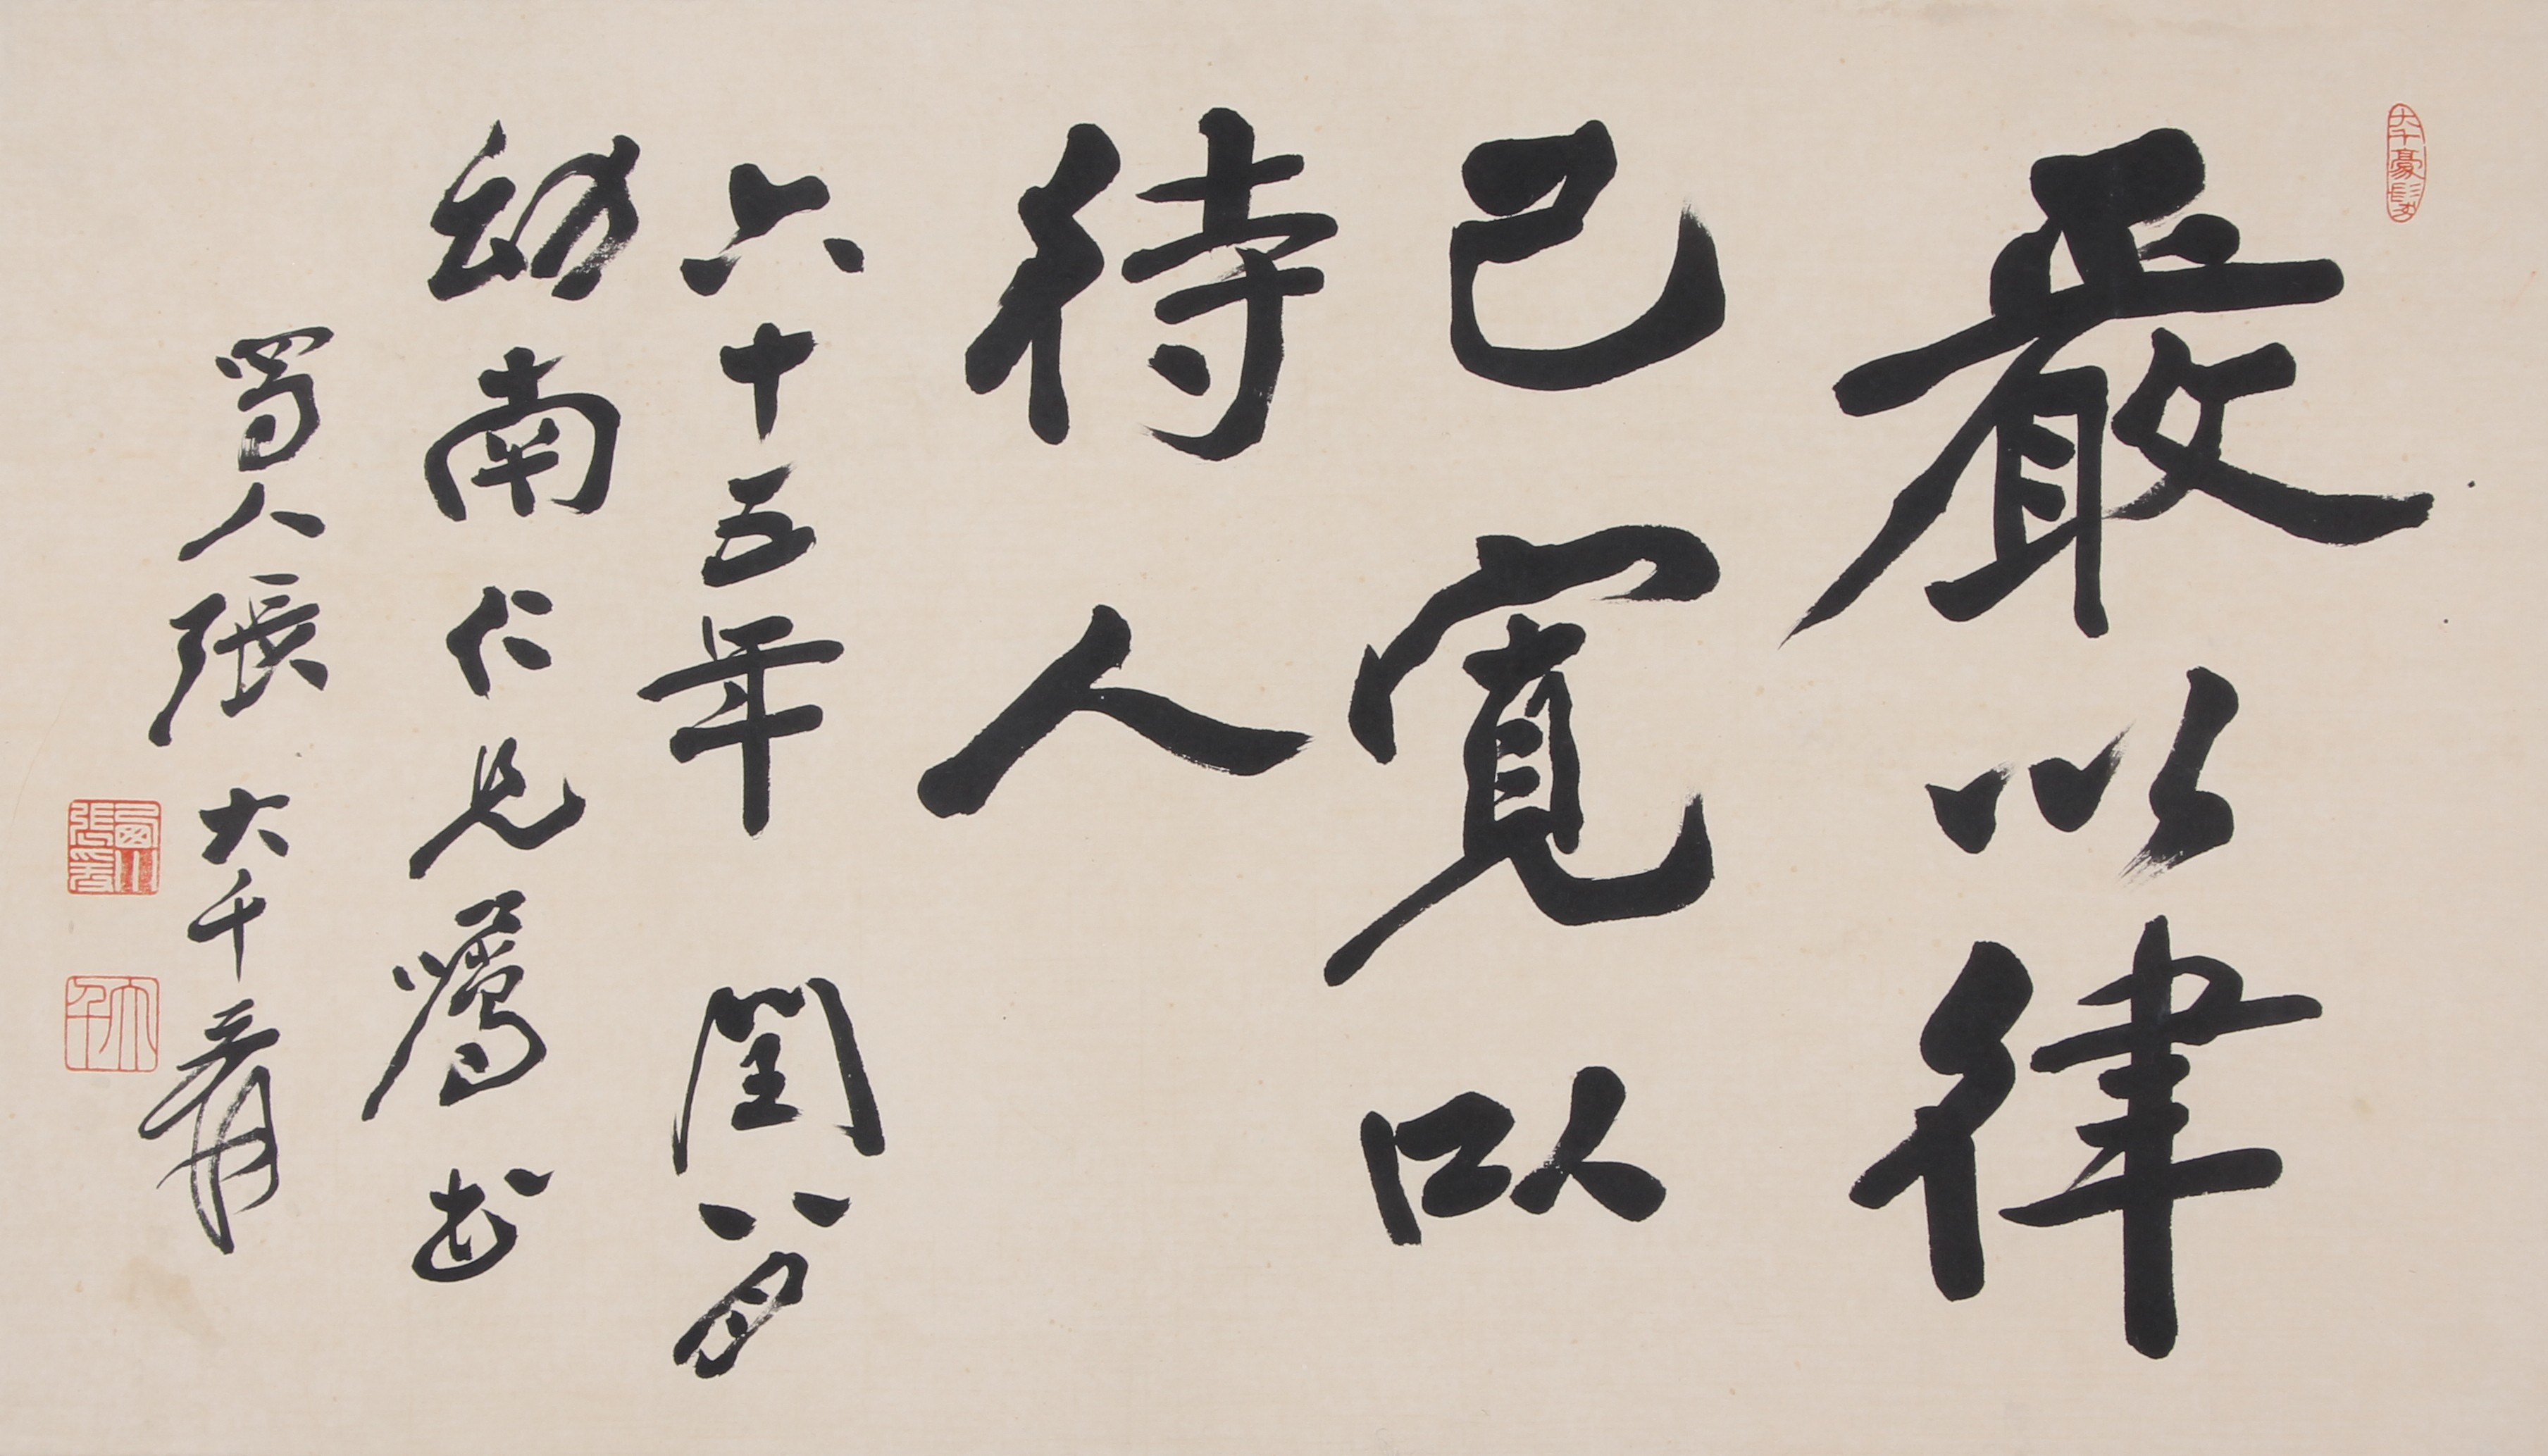 嚴以律
己寬以
待人
六十五年 閏八月
幼南仁兄屬書
蜀人張大千爰
大千豪髮